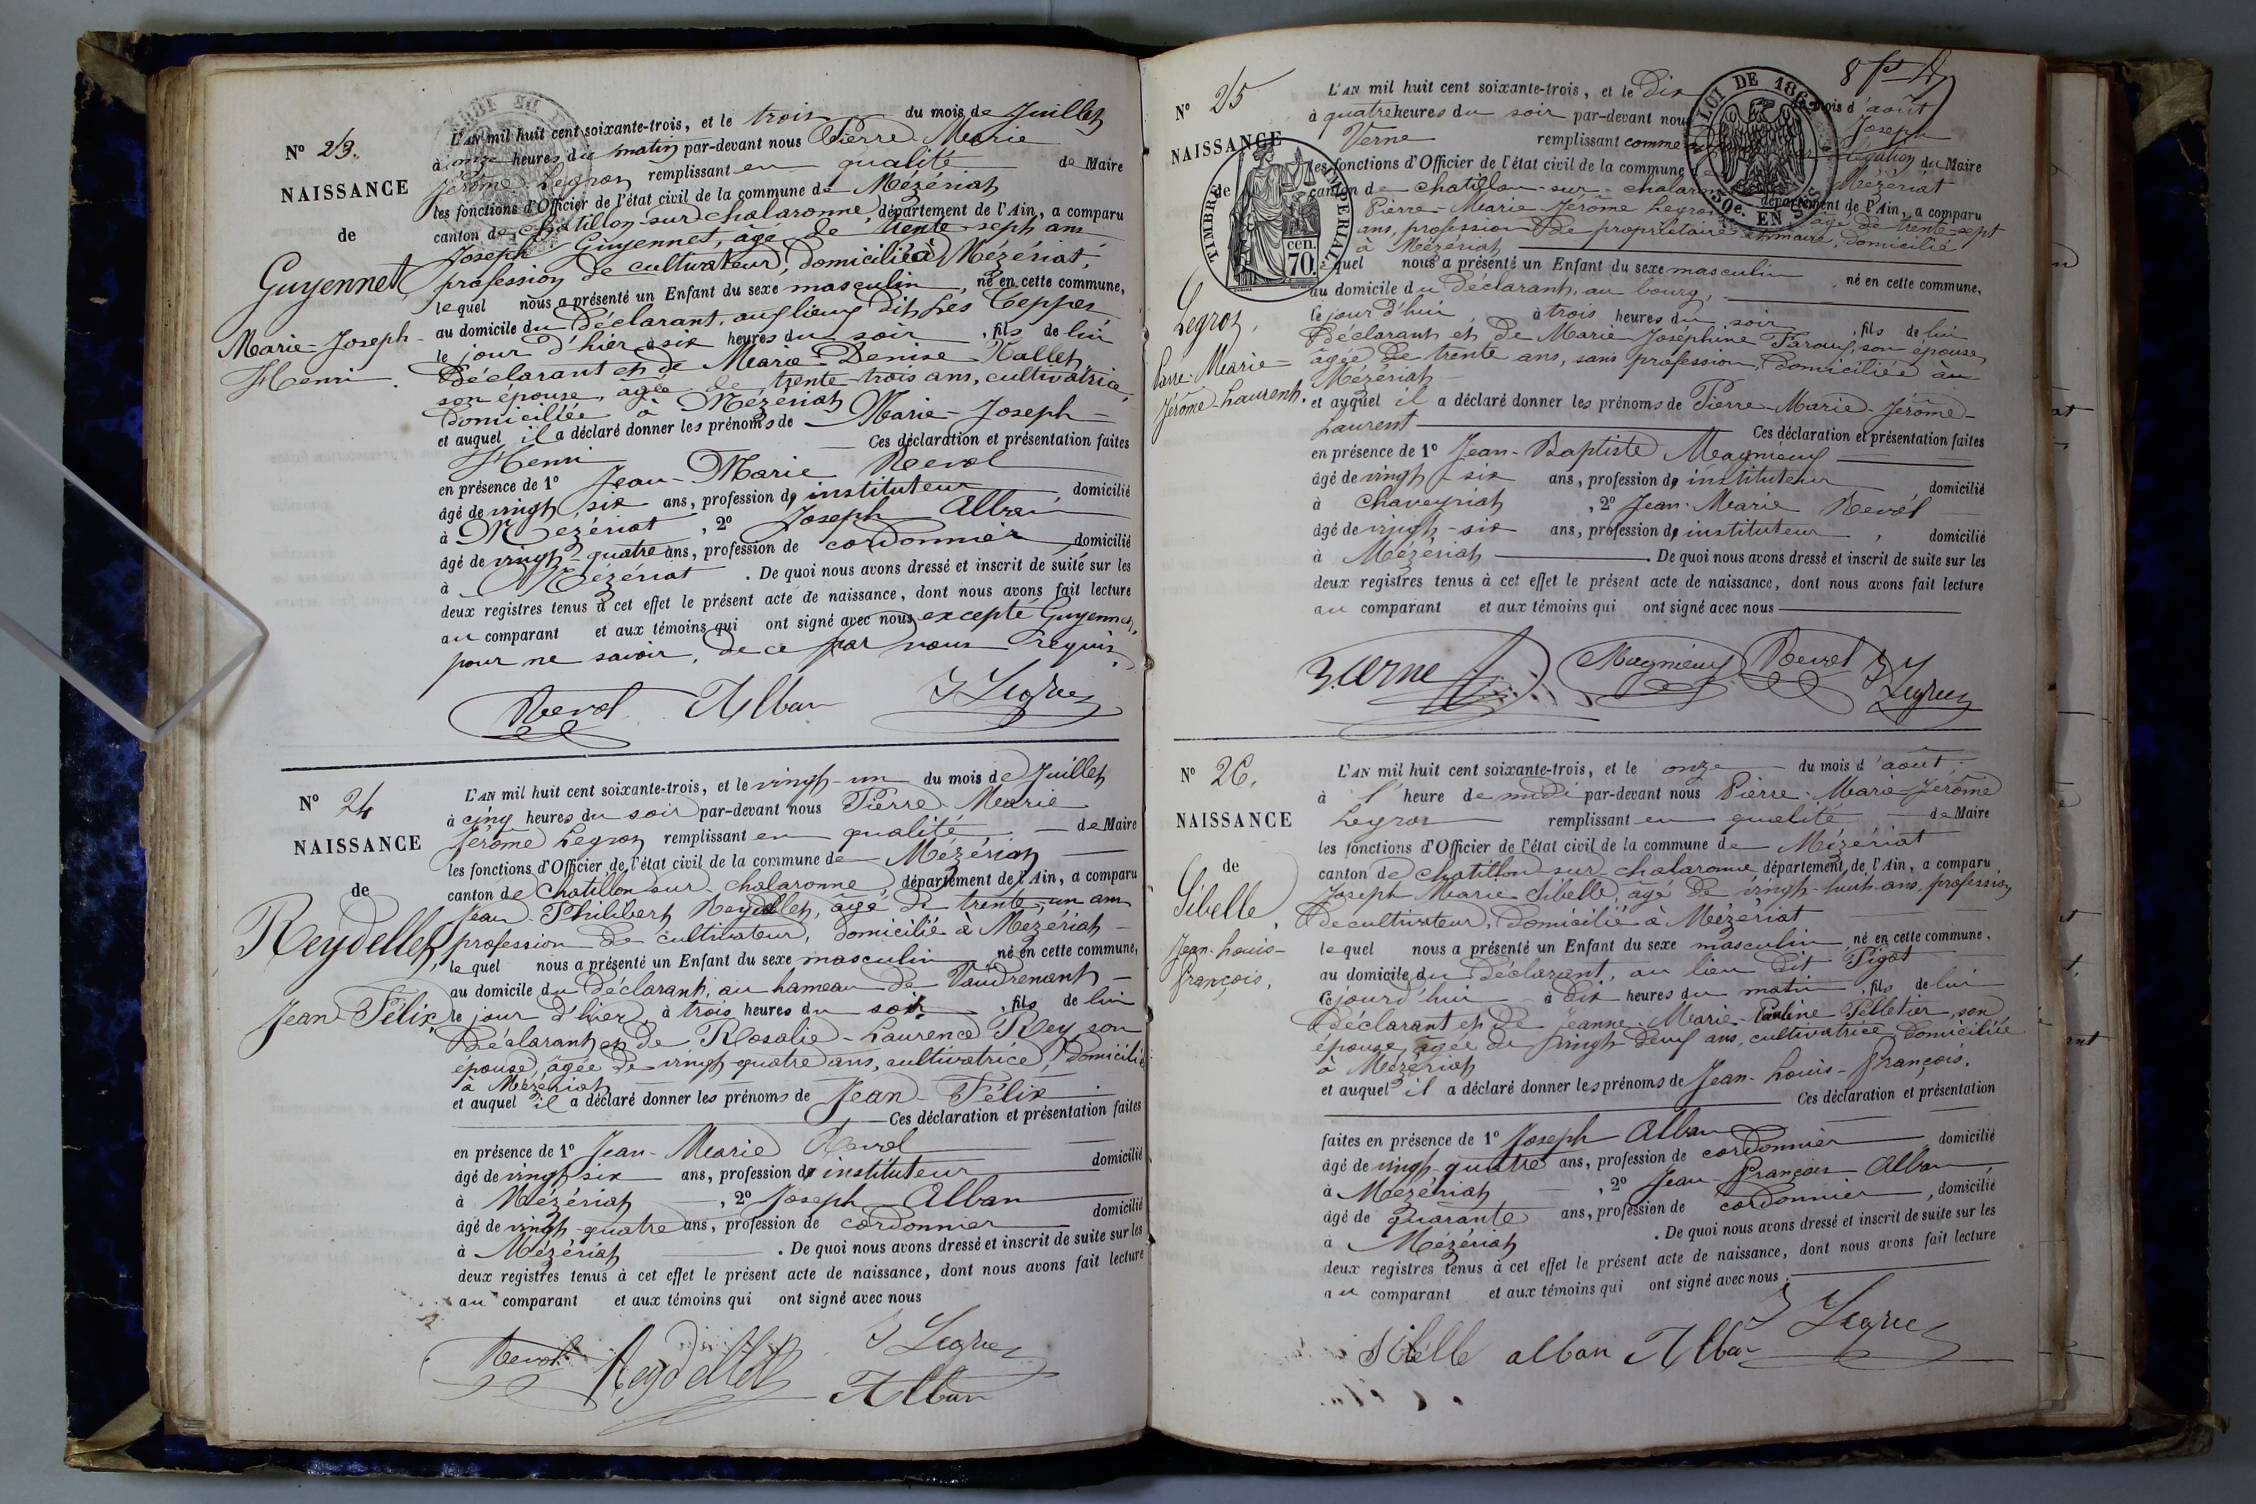 N° 23.
NAISSANCE
de
Guyennet
Marie-Joseph-
Henri.
L'AN mil huit cent soixante-trois, et le trois du mois de Juillet
à onze heures du matin par-devant nous Pierre Marie
Jérôme Legros remplissant en qualité de Maire
les fonctions d'Officier de l'état civil de la commune de Mézériat
canton de chatillon-sur-chalaronne, département de l'Ain, a comparu
Joseph Guyennet, âgé de trente-sept ans
profession de cultivateur, domicilié à Mézériat,
lequel nous a présenté un Enfant du sexe masculin, né en cette commune,
au domicile du Déclarant, au lieu dit Les Teppes
le jour d'hier à six heures du soir, fils de lui
Déclarant et de Marie-Denise Vallet,
son épouse, âgée de trente-trois ans, cultivatrice,
domiciliée à Mézériat
et auquel il a déclaré donner les prénoms de Marie-Joseph-
Henri Ces déclaration et présentation faites
en présence de 1° Jean-Marie Revol
âgé de vingt six ans, profession d' instituteur domicilié
à Mézériat, 2° Joseph Alban
âgé de vingt-quatre ans, profession de cordonnier, domicilié
à Mézériat. De quoi nous avons dressé et inscrit de suite sur les
deux registres tenus à cet effet le présent acte de naissance, dont nous avons fait lecture
au comparant et aux témoins qui ont signé avec nous excepté Guyennet,
pour ne savoir, de ce par nous requis.
Revol J Alban J Legros
N° 24
NAISSANCE
de
Reydellet,
Jean-Félix,
L'AN mil huit cent soixante-trois, et le vingt-un du mois de Juillet
à cinq heures du soir par-devant nous Pierre-Marie
Jérôme Legros remplissant en qualité de Maire
les fonctions d'Officier de l'état civil de la commune de Mézériat
canton de Chatillon-sur-chalaronne, département de l'Ain, a comparu
Jean Philibert Reydellet, âgé de trente-un ans
profession de cultivateur, domicilié à Mézériat-
lequel nous a présenté un Enfant du sexe masculin, né en cette commune,
au domicile du Déclarant, au hameau de Vaudrenant-
le jour d'hier, à trois heures du soir, fils de lui
Déclarant et de Rosalie-Laurence Rey, son
épouse, âgée de vingt-quatre ans, cultivatrice, domiciliée
à Mézériat
et auquel il a déclaré donner les prénoms de Jean-Félix
Ces déclaration et présentation faites
en présence de 1° Jean-Marie Revol
âgé de vingt six ans, profession d' instituteur domicilié
à Mézériat, 2° Joseph Alban
âgé de vingt-quatre ans, profession de cordonnier domicilié
à Mézériat. De quoi nous avons dressé et inscrit de suite sur les
deux registres tenus à cet effet le présent acte de naissance, dont nous avons fait lecture
au comparant et aux témoins qui ont signé avec nous
Revol Reydellet J Legros
J Alban
8 fet
LOI DE 186
50c. EN SUS
TIMBRE IMPERIAL
cen.
70.
N° 25
NAISSANCE
de
Legros,
Pierre-Marie-
Jérôme-Laurent.
L'AN mil huit cent soixante-trois, et le dix du mois d'août
à quatre heures du soir par-devant nous Joseph
Verne remplissant comme délégation du Maire
les fonctions d'Officier de l'état civil de la commune de Mézériat
canton de chatillon-sur-chalaronne département de l'Ain, a comparu
Pierre-Marie Jérôme Legros âgé de trente-sept
ans, profession de propriétaire et maire, domicilié
à Mézériat
lequel nous a présenté un Enfant du sexe masculin, né en cette commune,
au domicile du Déclarant, au bourg,
ce jour d'hui à trois heures du soir, fils de lui
Déclarant et de Marie-Joséphine son épouse,
âgée de trente ans, sans profession, domiciliée à
Mézériat
et auquel il a déclaré donner les prénoms de Pierre-Marie-Jérôme-
Laurent Ces déclaration et présentation faites
en présence de 1° Jean-Baptiste Magnieux
âgé de vingt-six ans, profession d' instituteur domicilié
à Chaveyriat, 2° Jean-Marie Revol
âgé de vingt-six ans, profession d' instituteur, domicilié
à Mézériat. De quoi nous avons dressé et inscrit de suite sur les
deux registres tenus à cet effet le présent acte de naissance, dont nous avons fait lecture
au comparant et aux témoins qui ont signé avec nous
J. Verne Magnieux Revol J Legros
N° 26.
NAISSANCE
de
Sibelle,
Jean-Louis-
François.
L'AN mil huit cent soixante-trois, et le onze du mois d'août.
à l'heure de midi par-devant nous Pierre-Marie-Jérôme
Legros remplissant en qualité de Maire
les fonctions d'Officier de l'état civil de la commune de Mézériat
canton de Chatillon-sur-chalaronne, département de l'Ain, a comparu
Joseph Marie Sibelle, âgé de vingt-huit ans, profession
de cultivateur, domicilié à Mézériat
lequel nous a présenté un Enfant du sexe masculin, né en cette commune,
au domicile du Déclarant, au lieu dit Pigot
ce jourd'hui à dix heures du matin, fils de lui
déclarant et de Jeanne-Marie-Pauline Pelletier, son
épouse, âgée de vingt-deux ans, cultivatrice, domiciliée
à Mézériat
et auquel il a déclaré donner les prénoms de Jean-Louis-François.
Ces déclaration et présentation
faites en présence de 1° Joseph Alban
âgé de vingt-quatre ans, profession de cordonnier domicilié
à Mézériat, 2° Jean-François Alban
âgé de quarante ans, profession de cordonnier, domicilié
à Mézériat. De quoi nous avons dressé et inscrit de suite sur les
deux registres tenus à cet effet le présent acte de naissance, dont nous avons fait lecture
au comparant et aux témoins qui ont signé avec nous.
Sibelle alban J Alban J Legros